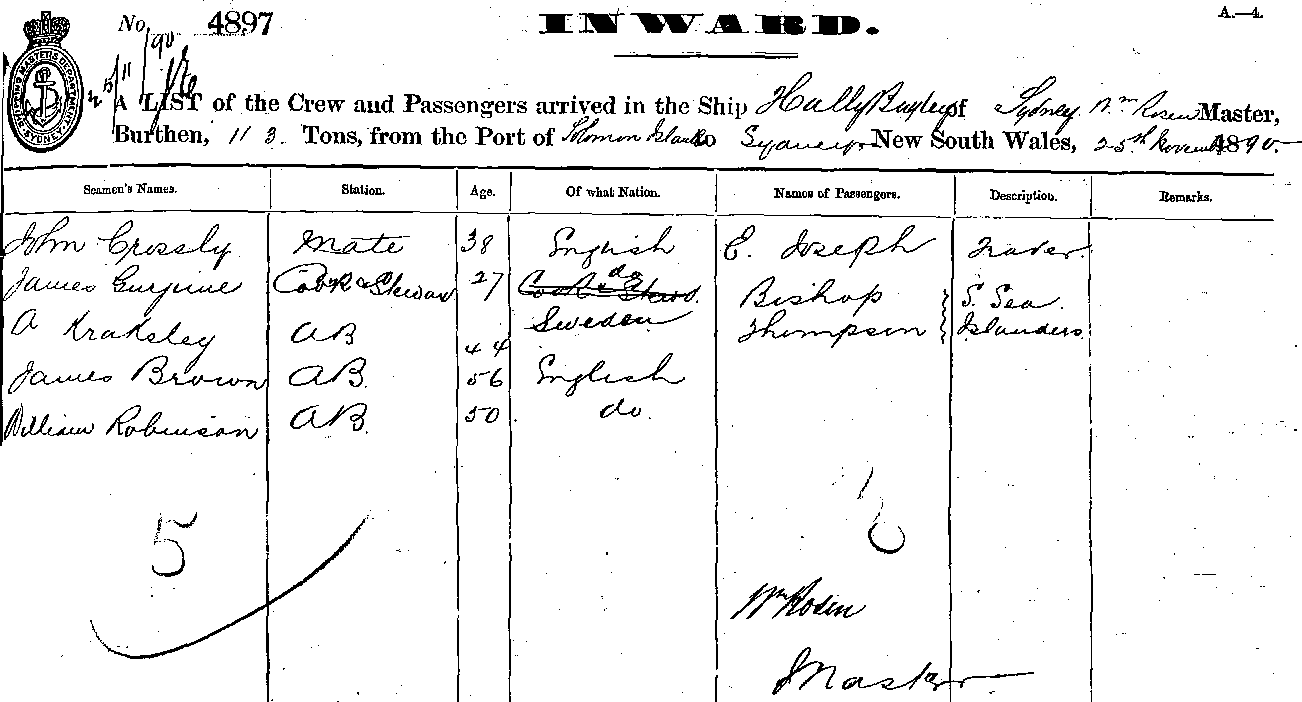 No. 4897
INWARD.
A.—4.
25/11/90
A LIST of the Crew and Passengers arrived in the Ship Hally Bayley of Sydney Wm Rosen Master,
Burthen, 113. Tons, from the Port of Solomon Islands to Sydney New South Wales, 25th November 1890.
Seamen's Names. Station. Age. Of what Nation. Names of Passengers. Description. Remarks.
John Crossly Mate 38 English E. Joseph Trader.
James Cook & Steward 27 do Bishop S. Sea
A Kraksley AB 44 Sweden Thompson Islanders
James Brown AB. 56 English
William Robinson AB. 50 do.
5
Wm Rosen
Master